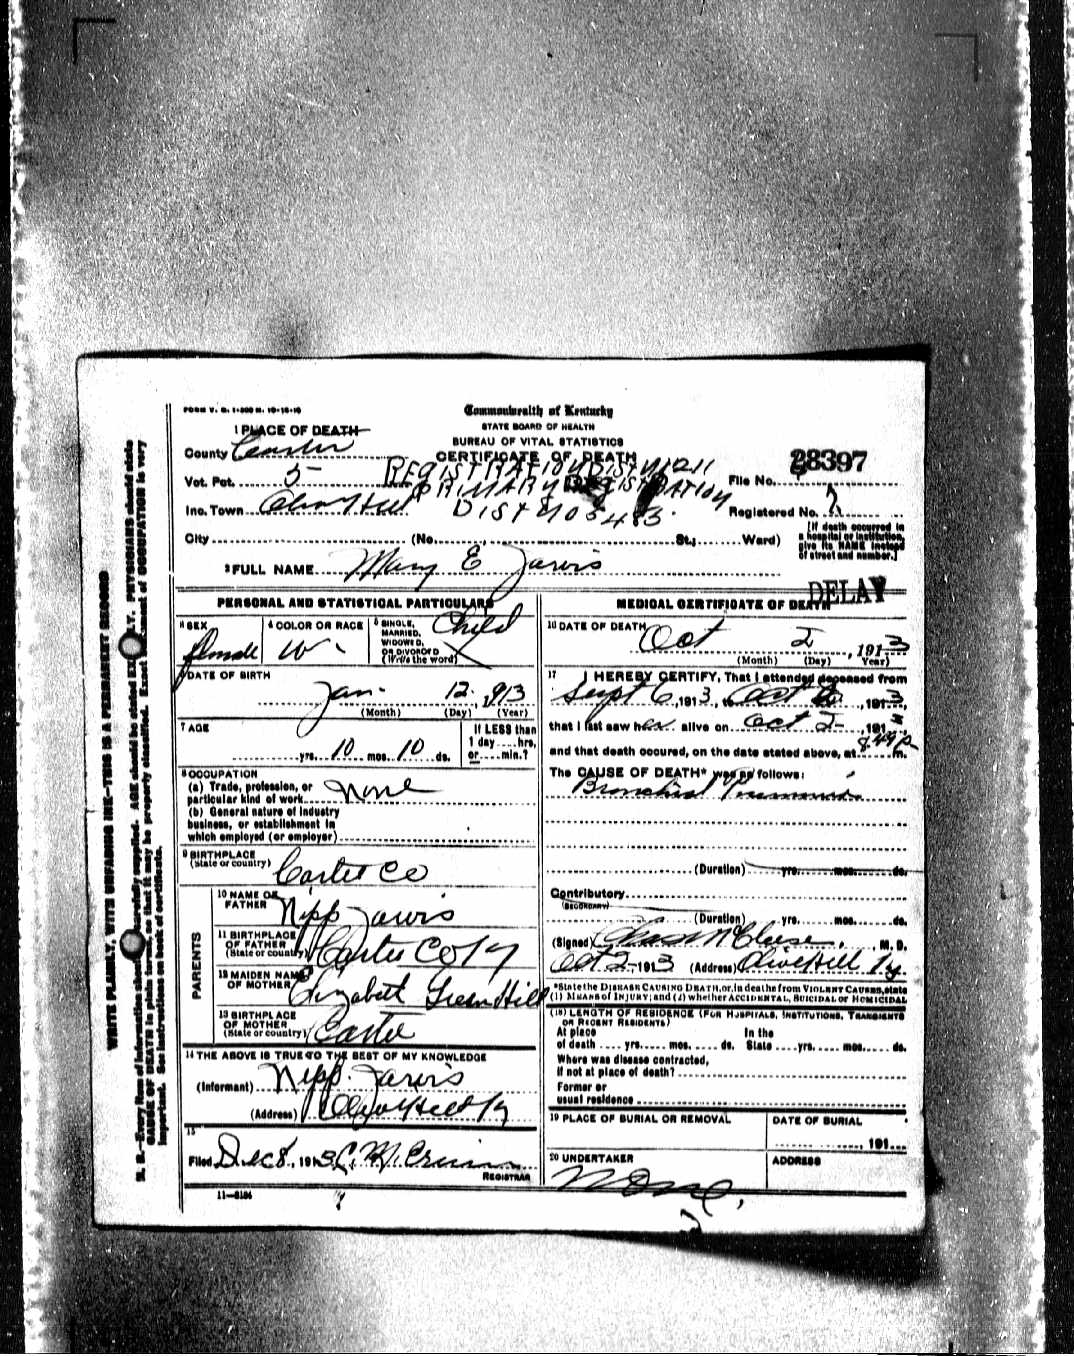 FORM V. S. 1-300 M. 10-18-10
Commonwealth of Kentucky
STATE BOARD OF HEALTH
BUREAU OF VITAL STATISTICS
CERTIFICATE OF DEATH
1 PLACE OF DEATH
County Carter
Vot. Pct. 5
Inc. Town Olive Hill
REGISTRATION DIST N 1211
PRIMARY REGISTRATION
DIST N 05483
28397
File No.
Registered No. 2
City (No. St.; Ward)
[If death occurred in a hospital or institution, give its NAME instead of street and number.]
2 FULL NAME Mary E Jarvis
DELAY
PERSONAL AND STATISTICAL PARTICULARS
3 SEX female
4 COLOR OR RACE W
5 SINGLE, MARRIED, WIDOWED, OR DIVORCED (Write the word) Child
6 DATE OF BIRTH
Jan. 12, 1913
(Month) (Day) (Year)
7 AGE
yrs. 10 mos. 10 ds.
If LESS than 1 day hrs, or min.?
8 OCCUPATION
(a) Trade, profession, or particular kind of work None
(b) General nature of industry
business, or establishment in
which employed (or employer)
9 BIRTHPLACE (State or country) Carter Co
PARENTS
10 NAME OF FATHER Nipp Jarvis
11 BIRTHPLACE OF FATHER (State or country) Carter Co Ky
12 MAIDEN NAME OF MOTHER Elizabet Green Hill
13 BIRTHPLACE OF MOTHER (State or country) Carter
14 THE ABOVE IS TRUE TO THE BEST OF MY KNOWLEDGE
(Informant) Nipp Jarvis
(Address) Olive Hill Ky
15
Filed Dec 8, 1913 C. M.
REGISTRAR
11-3184
MEDICAL CERTIFICATE OF DEATH
16 DATE OF DEATH
Oct 2, 1913
(Month) (Day) (Year)
17 I HEREBY CERTIFY, That I attended deceased from
Sept 6, 1913, to Oct 2, 1913
that I last saw her alive on Oct 2, 1913
and that death occured, on the date stated above, at 8 49 P m.
The CAUSE OF DEATH* was as follows:
Bronchial
(Duration) yrs. mos. ds.
Contributory
(SECONDARY)
(Duration) yrs. mos. ds.
(Signed) M. D.
Oct 2 1913 (Address) Olive Hill Ky
*State the DISEASE CAUSING DEATH, or, in deaths from VIOLENT CAUSES, state
(1) MEANS of INJURY; and (2) whether ACCIDENTAL, SUICIDAL or HOMICIDAL
(18) LENGTH OF RESIDENCE (FOR HOSPITALS, INSTITUTIONS, TRANSIENTS
OR RECENT RESIDENTS)
At place of death yrs. mos. ds. In the State yrs. mos. ds.
Where was disease contracted,
if not at place of death?
Former or
usual residence
19 PLACE OF BURIAL OR REMOVAL
DATE OF BURIAL
, 191
20 UNDERTAKER
None,
ADDRESS
2
WRITE PLAINLY, WITH UNFADING INK—THIS IS A PERMANENT RECORD
N. B.—Every item of information should be carefully supplied. AGE should be stated EXACTLY. PHYSICIANS should state
CAUSE OF DEATH in plain terms, so that it may be properly classified. Exact statement of OCCUPATION is very
important. See instructions on back of certificate.